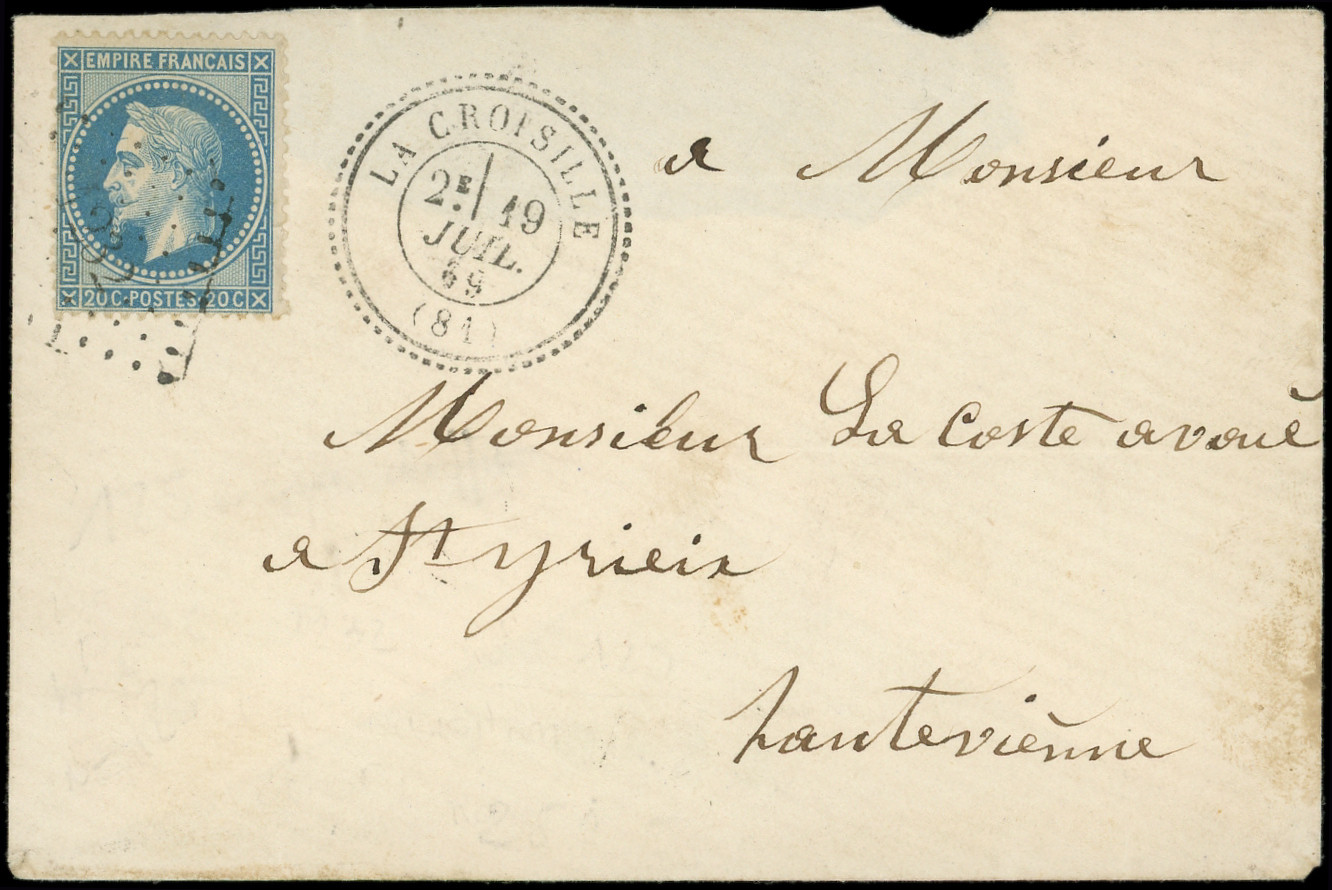 EMPIRE FRANCAIS
20 C · POSTES · 20 C
LA CROISILLE
2E 19
JUIL.
69
(81)
a Monsieur
Monsieur La Coste avoué
a St yrieix
hautevienne